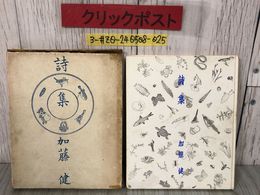 クリックポスト
3-#20-240508-025
詩集
加藤健
詩集
加藤健